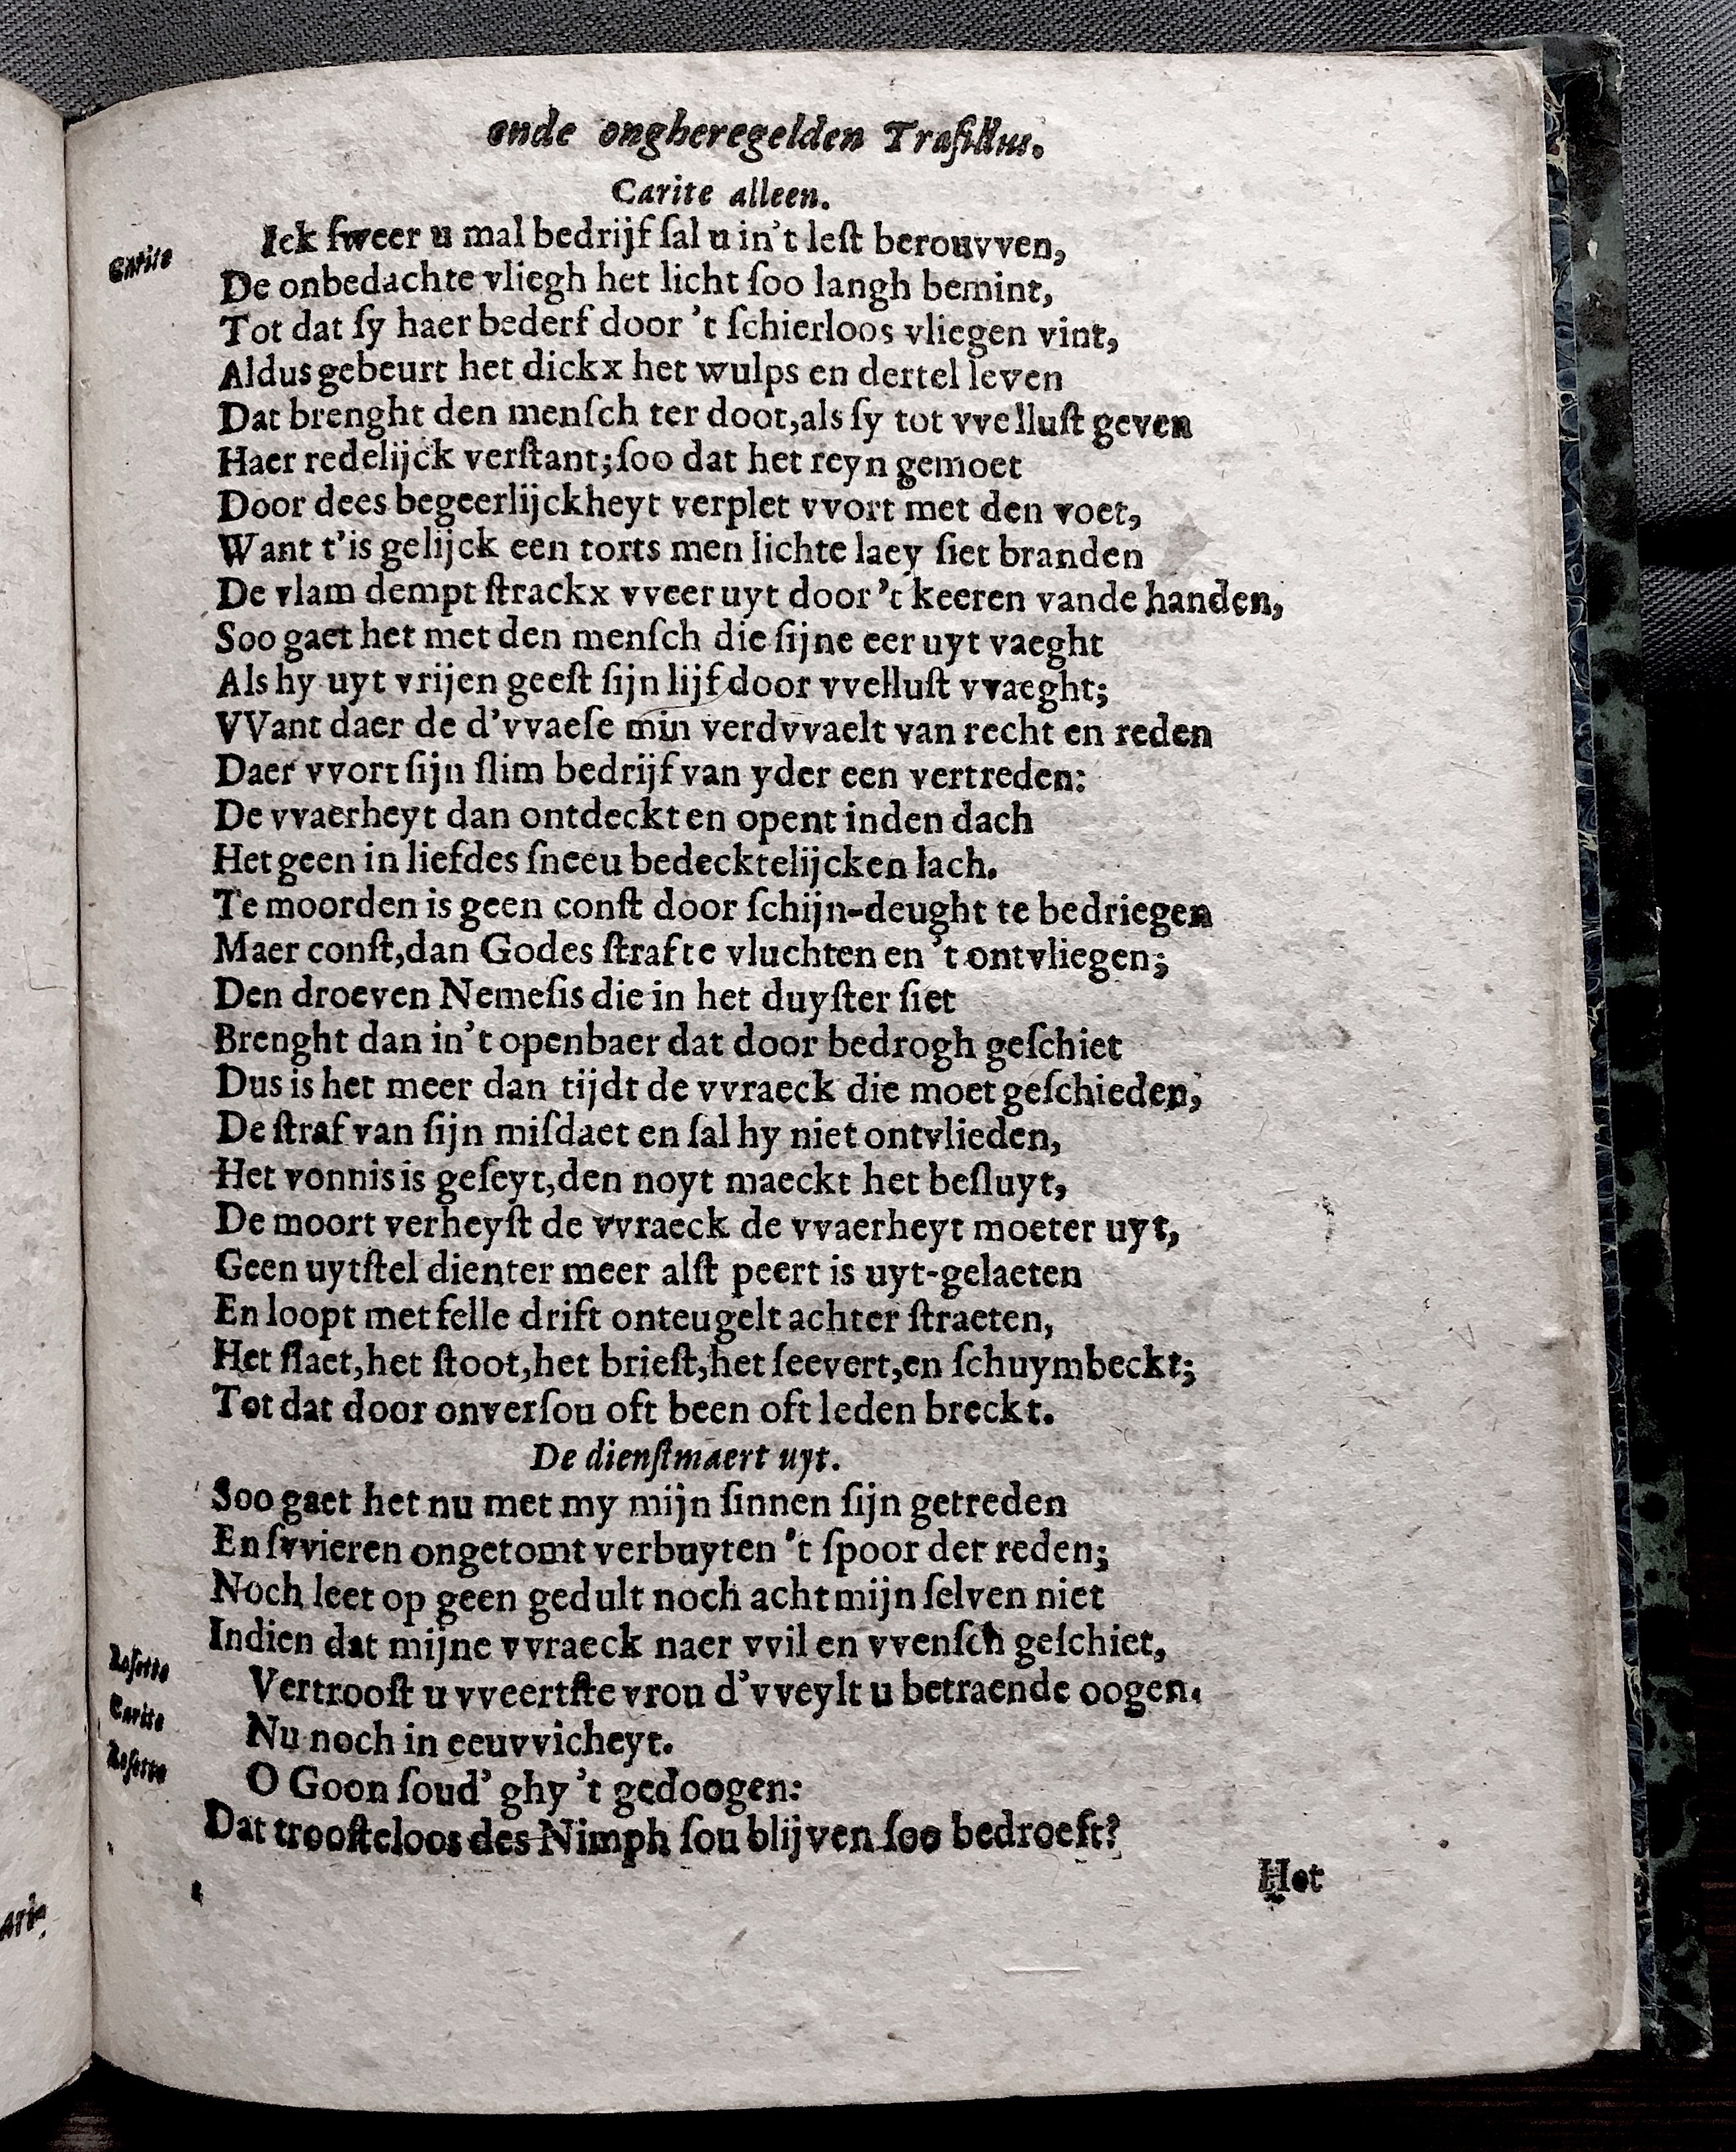 ende ongheregelden Traſillus.
Carite alleen.
Carite Ick ſweer u mal bedrijf ſal u in't leſt berouvven,
De onbedachte vliegh het licht ſoo langh bemint,
Tot dat ſy haer bederf door 't ſchierloos vliegen vint,
Aldus gebeurt het dickx het wulps en dertel leven
Dat brenght den menſch ter doot,als ſy tot vvelluſt geven
Haer redelijck verſtant;ſoo dat het reyn gemoet
Door dees begeerlijckheyt verplet vvort met den voet,
Want t'is gelijck een torts men lichte laey ſiet branden
De vlam dempt ſtrackx vveer uyt door 't keeren vande handen,
Soo gaet het met den menſch die ſijne eer uyt vaeght
Als hy uyt vrijen geeſt ſijn lijf door vvelluſt vvaeght;
VVant daer de d'vvaeſe min verdvvaelt van recht en reden
Daer vvort ſijn ſlim bedrijf van yder een vertreden:
De vvaerheyt dan ontdeckt en opent inden dach
Het geen in liefdes ſneeu bedecktelijcken lach.
Te moorden is geen conſt door ſchijn-deught te bedriegen
Maer conſt,dan Godes ſtraf te vluchten en 't ontvliegen;
Den droeven Nemeſis die in het duyſter ſiet
Brenght dan in't openbaer dat door bedrogh geſchiet
Dus is het meer dan tijdt de vvraeck die moet geſchieden,
De ſtraf van ſijn miſdaet en ſal hy niet ontvlieden,
Het vonnis is geſeyt,den noyt maeckt het beſluyt,
De moort verheyſt de vvraeck de vvaerheyt moeter uyt,
Geen uytſtel dienter meer alſt peert is uyt-gelaeten
En loopt met felle drift onteugelt achter ſtraeten,
Het ſlaet,het ſtoot,het brieſt,het ſeevert,en ſchuymbeckt;
Tot dat door onverſou oft been oft leden breckt.
De dienſtmaert uyt.
Soo gaet het nu met my mijn ſinnen ſijn getreden
En ſvvieren ongetomt verbuyten 't ſpoor der reden;
Noch leet op geen gedult noch acht mijn ſelven niet
Indien dat mijne vvraeck naer vvil en vvenſch geſchiet,
Roſette Vertrooſt u vveertſte vrou d'vveylt u betraende oogen.
Carite Nu noch in eeuvvicheyt.
Roſette O Goon ſoud' ghy 't gedoogen:
Dat trooſteloos des Nimph ſou blijven ſoo bedroeft?
Het